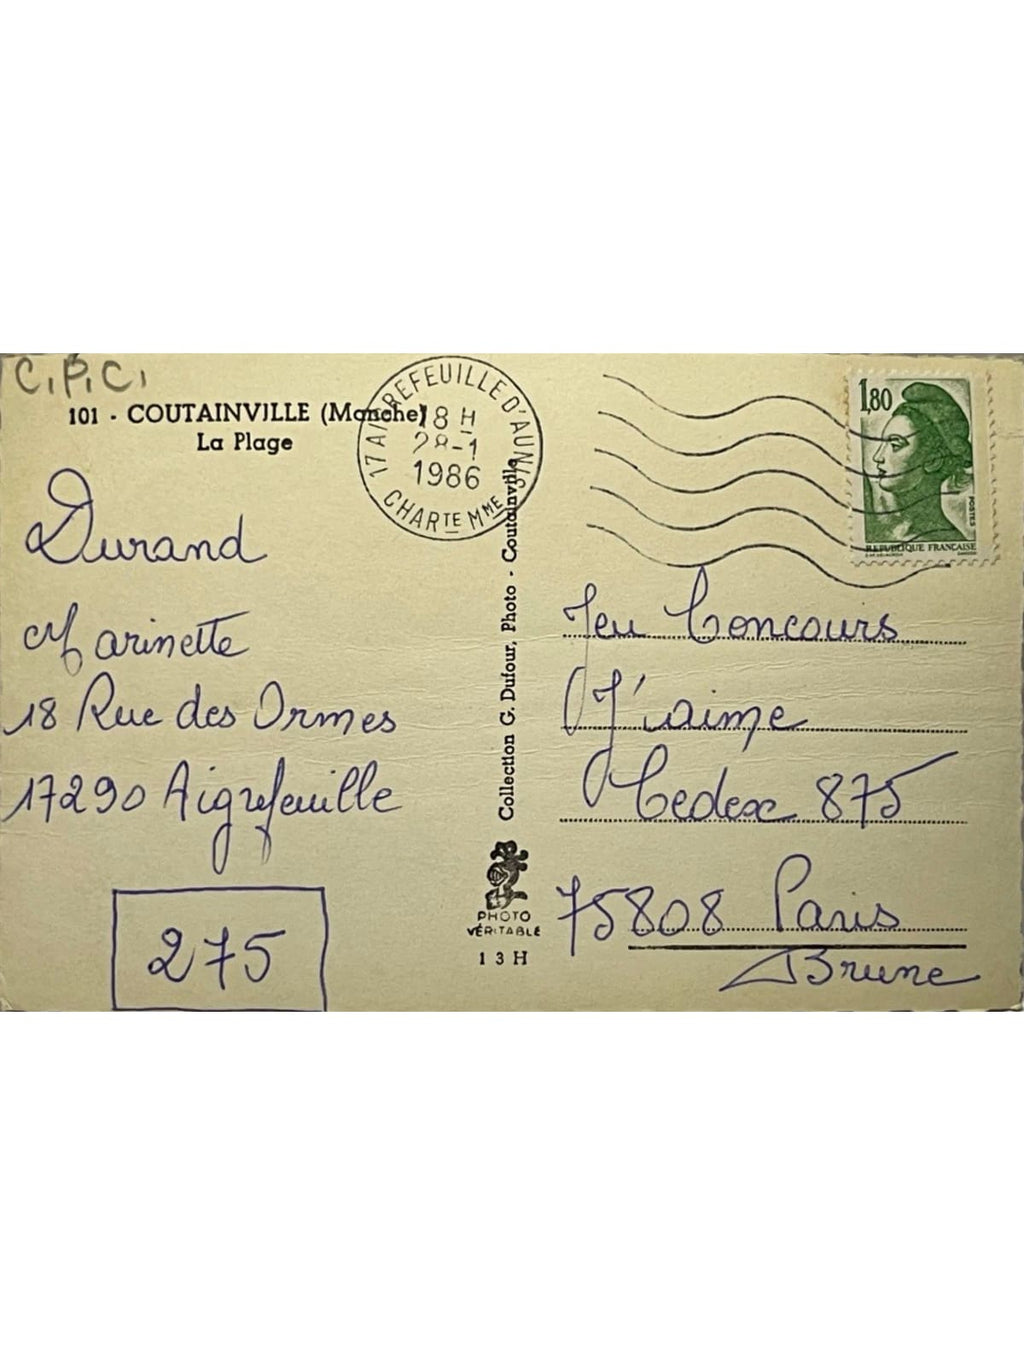 C.P.C.
101 - COUTAINVILLE (Manche)
La Plage
17 AIGREFEUILLE D'AUNIS
18 H
28-1
1986
CHARTE MME
1,80
POSTES
REPUBLIQUE FRANÇAISE
Durand
Marinette
18 Rue des Ormes
17290 Aigrefeuille
275
Collection G. Dufour, Photo - Coutainville
PHOTO
VÉRITABLE
13H
Jeu Concours
J'aime
Cedex 875
75808 Paris
Brune